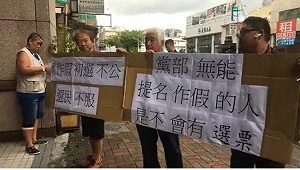 初選不公
選民不服
黨部無能
提名作假的人
是不會有選票
租